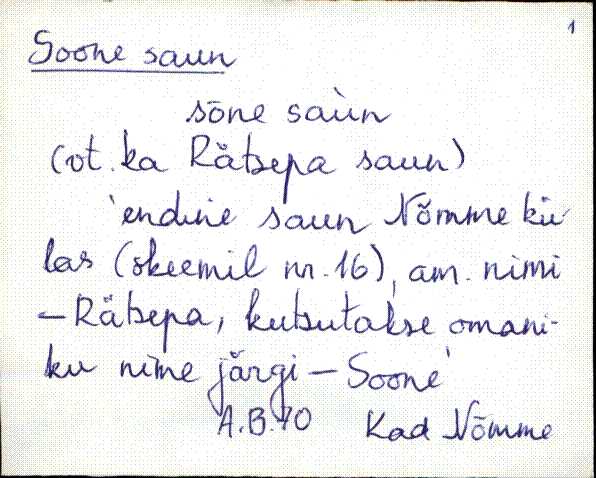 1
Soone saun
sōne saùn
(vt. ka Rätsepa saun)
'endine saun Nõmme kü-
las (skeemil nr. 16), am. nimi
– Rätsepa, kutsutakse omani-
ku nime järgi – Soone'
A.B. 70 Kad Nõmme